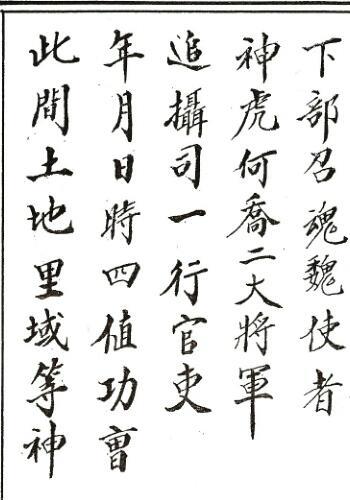 下部召魂魏使者
神虎何喬二大將軍
追攝司一行官吏
年月日時四值功曺
此間土地里域等神